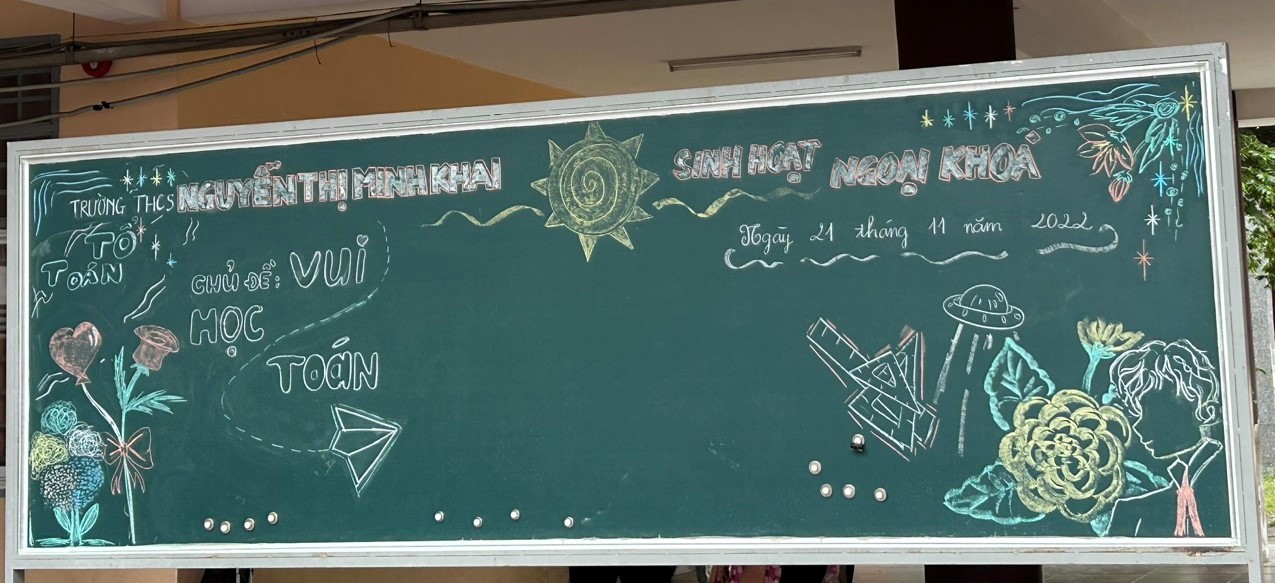 TRƯỜNG THCS NGUYỄN THỊ MINH KHAI
TỔ
TOÁN
CHỦ ĐỀ: VUI
HỌC
TOÁN
SINH HOẠT NGOẠI KHOÁ
Ngày 21 tháng 11 năm 2022